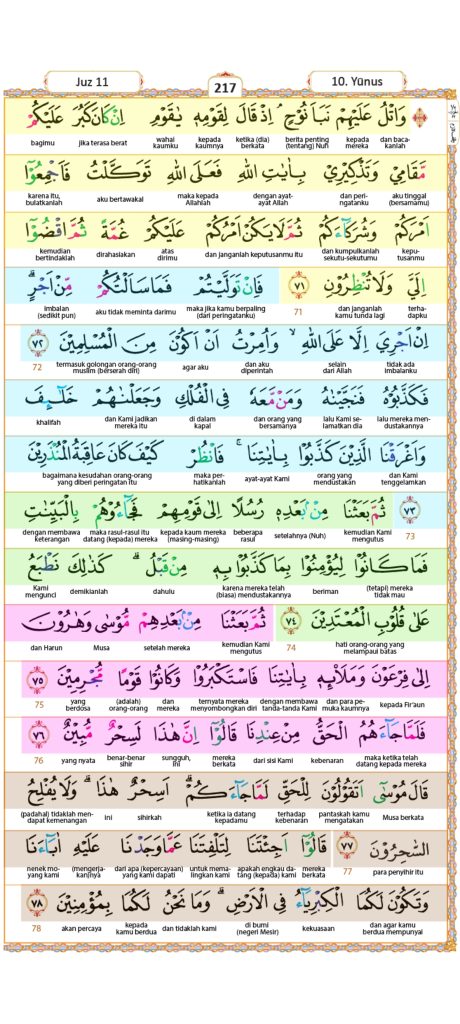 Juz 11
217
10. Yūnus
وَاتْلُ عَلَيْهِمْ نَبَاَ نُوْحٍۘ اِذْ قَالَ لِقَوْمِهٖ يٰقَوْمِ اِنْ كَانَ كَبُرَ عَلَيْكُمْ
dan baca-kanlah kepada mereka berita penting (tentang) Nuh ketika (dia) berkata kepada kaumnya wahai kaumku jika terasa berat bagimu
مَّقَامِيْ وَتَذْكِيْرِيْ بِاٰيٰتِ اللّٰهِ فَعَلَى اللّٰهِ تَوَكَّلْتُ فَاَجْمِعُوْٓا
aku tinggal (bersamamu) dan peri-ngatanku dengan ayat-ayat Allah maka kepada Allahlah aku bertawakal karena itu, bulatkanlah
اَمْرَكُمْ وَشُرَكَاۤءَكُمْ ثُمَّ لَا يَكُنْ اَمْرُكُمْ عَلَيْكُمْ غُمَّةً ثُمَّ اقْضُوْٓا
kepu-tusanmu dan kumpulkanlah sekutu-sekutumu dan janganlah keputusanmu itu atas dirimu dirahasiakan kemudian bertindaklah
اِلَيَّ وَلَا تُنْظِرُوْنِ ۝٧١ فَاِنْ تَوَلَّيْتُمْ فَمَا سَاَلْتُكُمْ مِّنْ اَجْرٍۗ
terha-dapku dan janganlah kamu tunda lagi 71 maka jika kamu berpaling (dari peringatanku) aku tidak meminta darimu imbalan (sedikit pun)
اِنْ اَجْرِيَ اِلَّا عَلَى اللّٰهِ ۙ وَاُمِرْتُ اَنْ اَكُوْنَ مِنَ الْمُسْلِمِيْنَ ۝٧٢
tidak ada imbalanku selain dari Allah dan aku diperintah agar aku termasuk golongan orang-orang muslim (berserah diri) 72
فَكَذَّبُوْهُ فَنَجَّيْنٰهُ وَمَنْ مَّعَهٗ فِى الْفُلْكِ وَجَعَلْنٰهُمْ خَلٰۤىِٕفَ
lalu mereka men-dustakannya lalu Kami se-lamatkan dia dan orang yang bersamanya di dalam kapal dan Kami jadikan mereka itu khalifah
وَاَغْرَقْنَا الَّذِيْنَ كَذَّبُوْا بِاٰيٰتِنَاۚ فَانْظُرْ كَيْفَ كَانَ عَاقِبَةُ الْمُنْذَرِيْنَ
dan Kami tenggelamkan orang yang mendustakan ayat-ayat Kami maka per-hatikanlah bagaimana kesudahan orang-orang yang diberi peringatan itu
۝٧٣ ثُمَّ بَعَثْنَا مِنْۢ بَعْدِهٖ رُسُلًا اِلٰى قَوْمِهِمْ فَجَاۤءُوْهُمْ بِالْبَيِّنٰتِ
73 kemudian Kami mengutus setelahnya (Nuh) beberapa rasul kepada kaum mereka (masing-masing) maka rasul-rasul itu datang (kepada) mereka dengan membawa keterangan
فَمَا كَانُوْا لِيُؤْمِنُوْا بِمَا كَذَّبُوْا بِهٖ مِنْ قَبْلُ ۗ كَذٰلِكَ نَطْبَعُ
(tetapi) mereka tidak mau beriman karena mereka telah (biasa) mendustakannya dahulu demikianlah Kami mengunci
عَلٰى قُلُوْبِ الْمُعْتَدِيْنَ ۝٧٤ ثُمَّ بَعَثْنَا مِنْۢ بَعْدِهِمْ مُّوْسٰى وَهٰرُوْنَ
hati orang-orang yang melampaui batas 74 kemudian Kami mengutus setelah mereka Musa dan Harun
اِلٰى فِرْعَوْنَ وَمَلَا۟ىِٕهٖ بِاٰيٰتِنَا فَاسْتَكْبَرُوْا وَكَانُوْا قَوْمًا مُّجْرِمِيْنَ ۝٧٥
kepada Fir'aun dan para pe-muka kaumnya dengan membawa tanda-tanda Kami ternyata mereka menyombongkan diri dan mereka (adalah) orang-orang yang berdosa 75
فَلَمَّا جَاۤءَهُمُ الْحَقُّ مِنْ عِنْدِنَا قَالُوْٓا اِنَّ هٰذَا لَسِحْرٌ مُّبِيْنٌ ۝٧٦
maka ketika telah datang kepada mereka kebenaran dari sisi Kami mereka berkata sungguh, ini benar-benar sihir yang nyata 76
قَالَ مُوْسٰٓى اَتَقُوْلُوْنَ لِلْحَقِّ لَمَّا جَاۤءَكُمْ ۗ اَسِحْرٌ هٰذَاۗ وَلَا يُفْلِحُ
Musa berkata pantaskah kamu mengatakan terhadap kebenaran ketika ia datang kepadamu sihirkah ini (padahal) tidaklah men-dapat kemenangan
السّٰحِرُوْنَ ۝٧٧ قَالُوْٓا اَجِئْتَنَا لِتَلْفِتَنَا عَمَّا وَجَدْنَا عَلَيْهِ اٰبَاۤءَنَا
para penyihir itu 77 mereka berkata apakah engkau da-tang (kepada) kami untuk mema-lingkan kami dari apa (kepercayaan) yang kami dapati (mengerja-kan)nya nenek mo-yang kami
وَتَكُوْنَ لَكُمَا الْكِبْرِيَاۤءُ فِى الْاَرْضِۗ وَمَا نَحْنُ لَكُمَا بِمُؤْمِنِيْنَ ۝٧٨
dan agar kamu berdua mempunyai kekuasaan di bumi (negeri Mesir) dan tidaklah kami kepada kamu berdua akan percaya 78